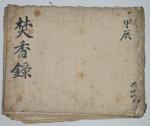 甲辰
焚香錄